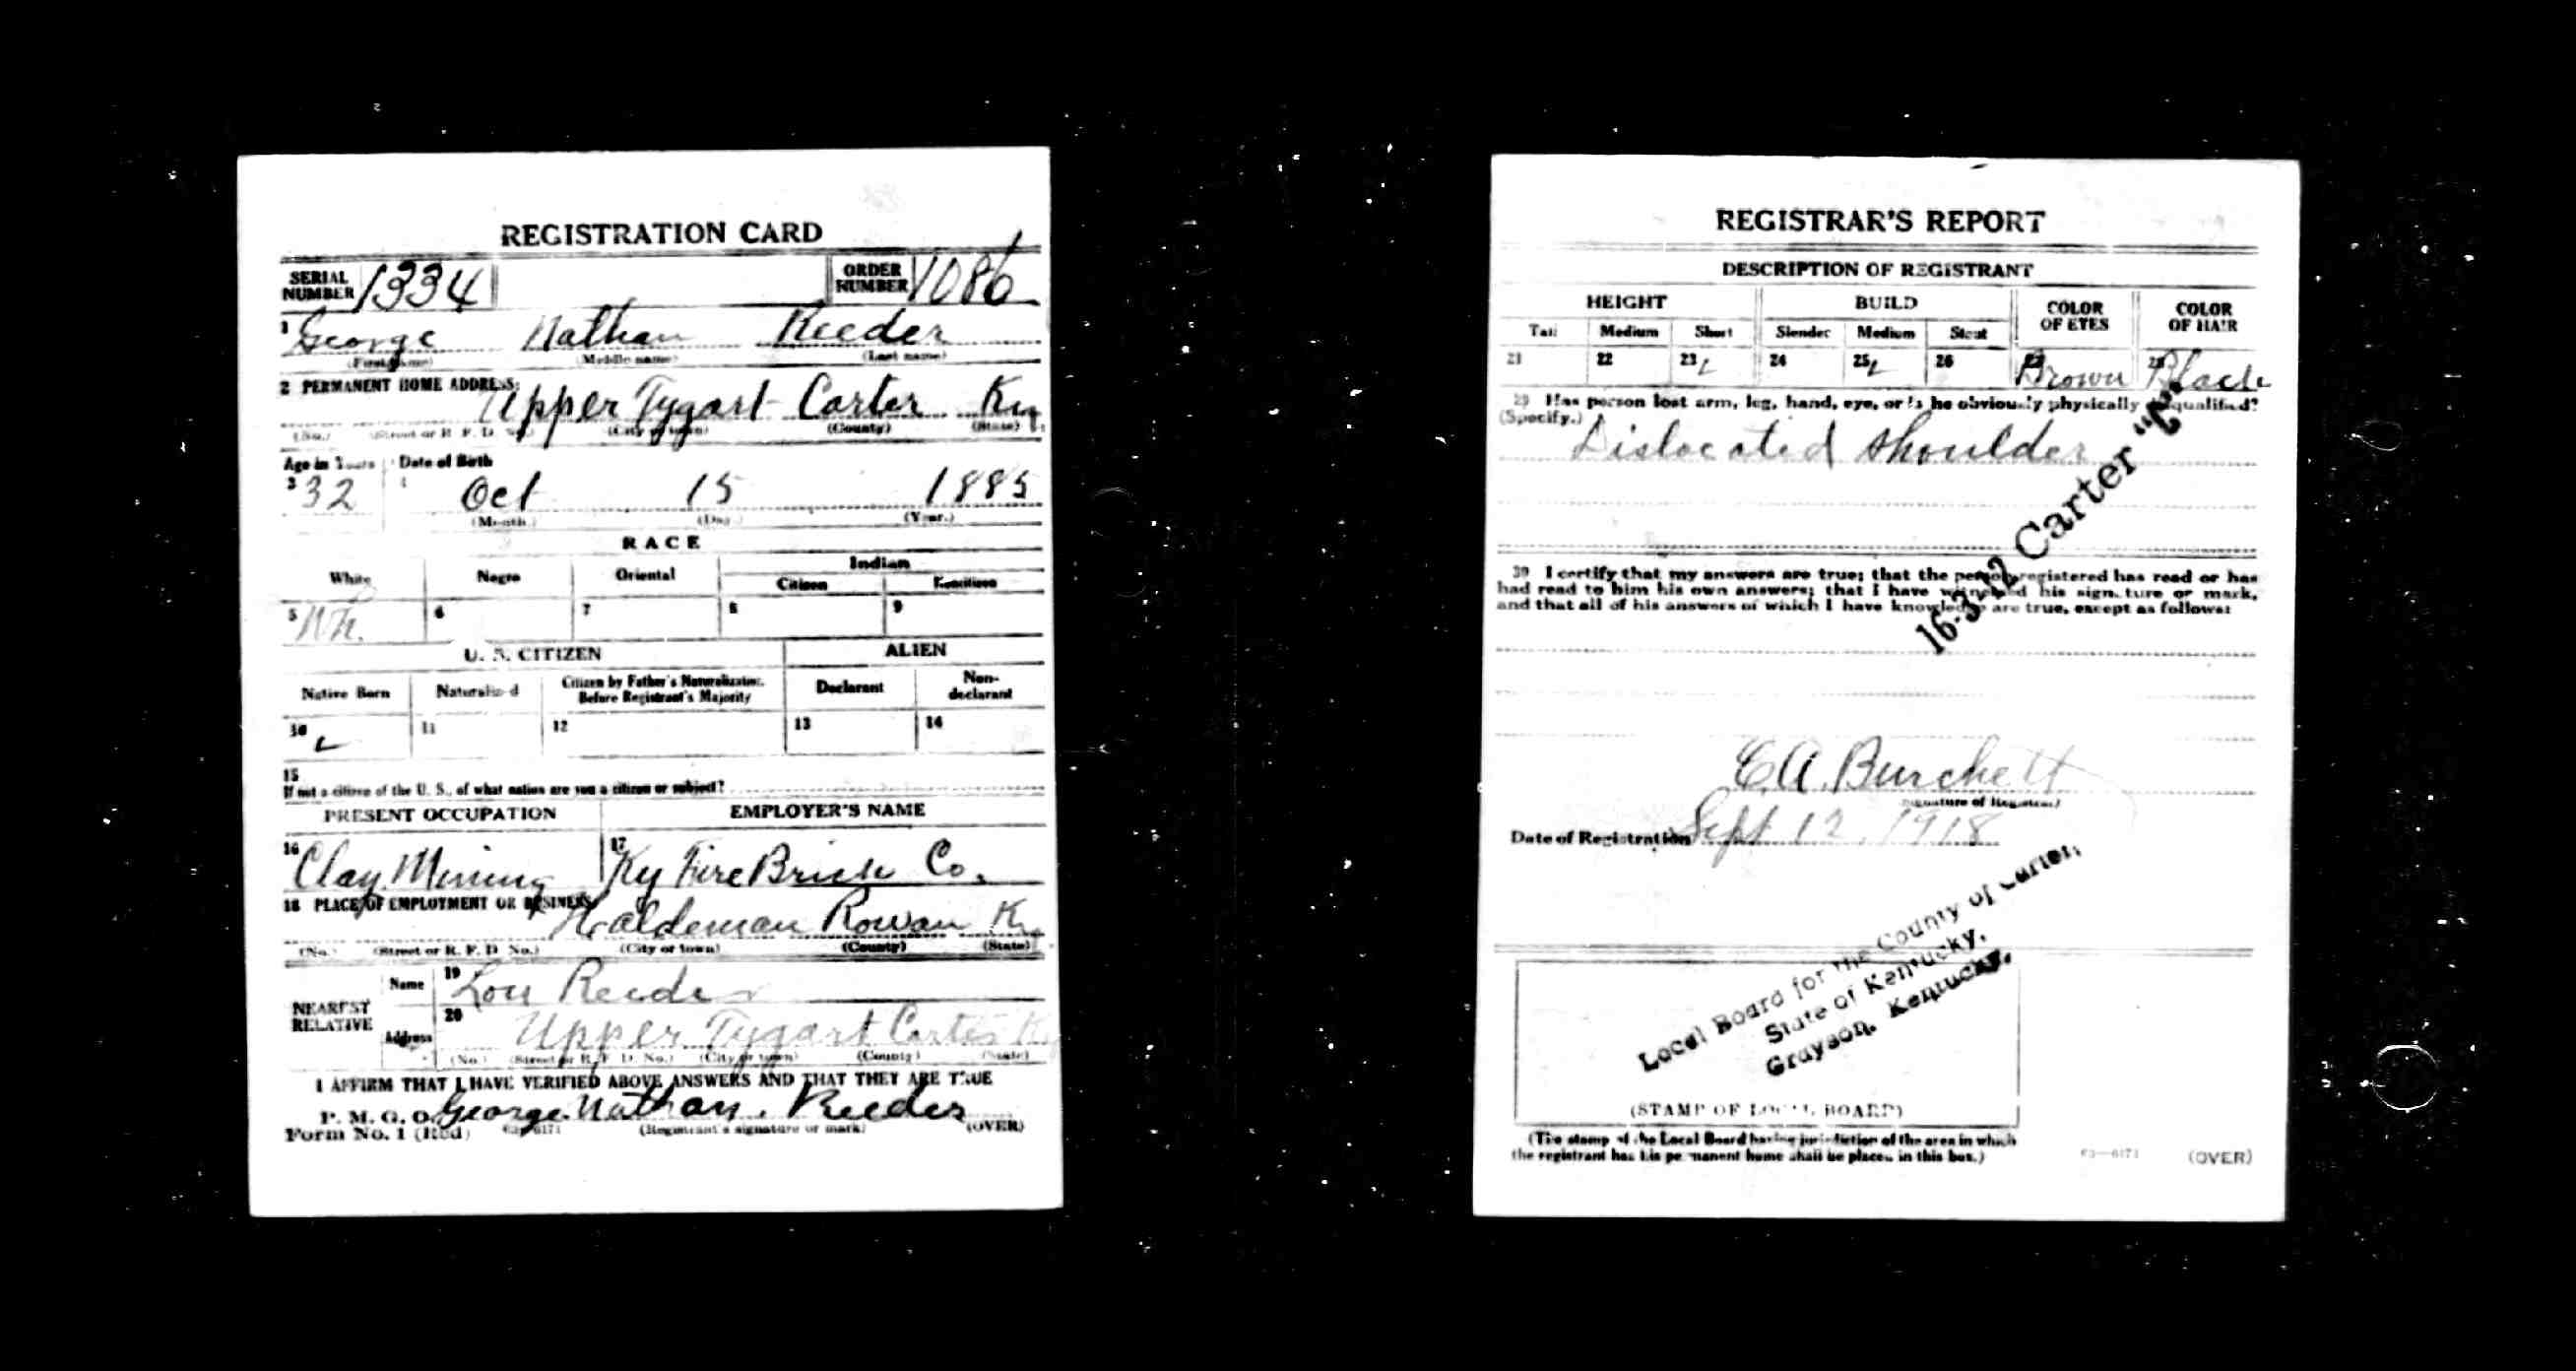 REGISTRATION CARD
SERIAL NUMBER 1334 ORDER NUMBER 1086
1 George Nathan Reeder
(First name) (Middle name) (Last name)
2 PERMANENT HOME ADDRESS:
Upper Tygart Carter Ky
(No.) (Street or R. F. D. No.) (City or town) (County) (State)
Age in Years Date of Birth
3 32 4 Oct 15 1885
(Month.) (Day.) (Year.)
RACE
White Negro Oriental Indian
Citizen Noncitizen
5 Wh. 6 7 8 9
U. S. CITIZEN ALIEN
Native Born Naturalized Citizen by Father's Naturalization Before Registrant's Majority Declarant Non-declarant
10 11 12 13 14
15
If not a citizen of the U. S., of what nation are you a citizen or subject?
PRESENT OCCUPATION EMPLOYER'S NAME
16 Clay Mining 17 Ky Fire Brick Co.
18 PLACE OF EMPLOYMENT OR BUSINESS
Haldeman Rowan Ky
(No.) (Street or R. F. D. No.) (City or town) (County) (State)
NEAREST RELATIVE Name 19 Lou Reeder
Address 20 Upper Tygart Carter Ky
(No.) (Street or R. F. D. No.) (City or town) (County) (State)
I AFFIRM THAT I HAVE VERIFIED ABOVE ANSWERS AND THAT THEY ARE TRUE
P. M. G. O. George Nathan. Reeder
Form No. 1 (Red) 03-6171 (Registrant's signature or mark) (OVER)
REGISTRAR'S REPORT
DESCRIPTION OF REGISTRANT
HEIGHT BUILD COLOR OF EYES COLOR OF HAIR
Tall Medium Short Slender Medium Stout
21 22 23 24 25 26 27 Brown 28 Black
29 Has person lost arm, leg, hand, eye, or is he obviously physically disqualified?
(Specify.)
Dislocated shoulder
16-3-12 Carter "A"
30 I certify that my answers are true; that the person registered has read or has
had read to him his own answers; that I have witnessed his signature or mark,
and that all of his answers of which I have knowledge are true, except as follows:
E.A. Burchett
(Signature of Registrar)
Date of Registration Sept 12, 1918
Local Board for the County of Carter,
State of Kentucky,
Grayson, Kentucky.
(STAMP OF LOCAL BOARD)
(The stamp of the Local Board having jurisdiction of the area in which
the registrant has his permanent home shall be placed in this box.)
03-6171 (OVER)